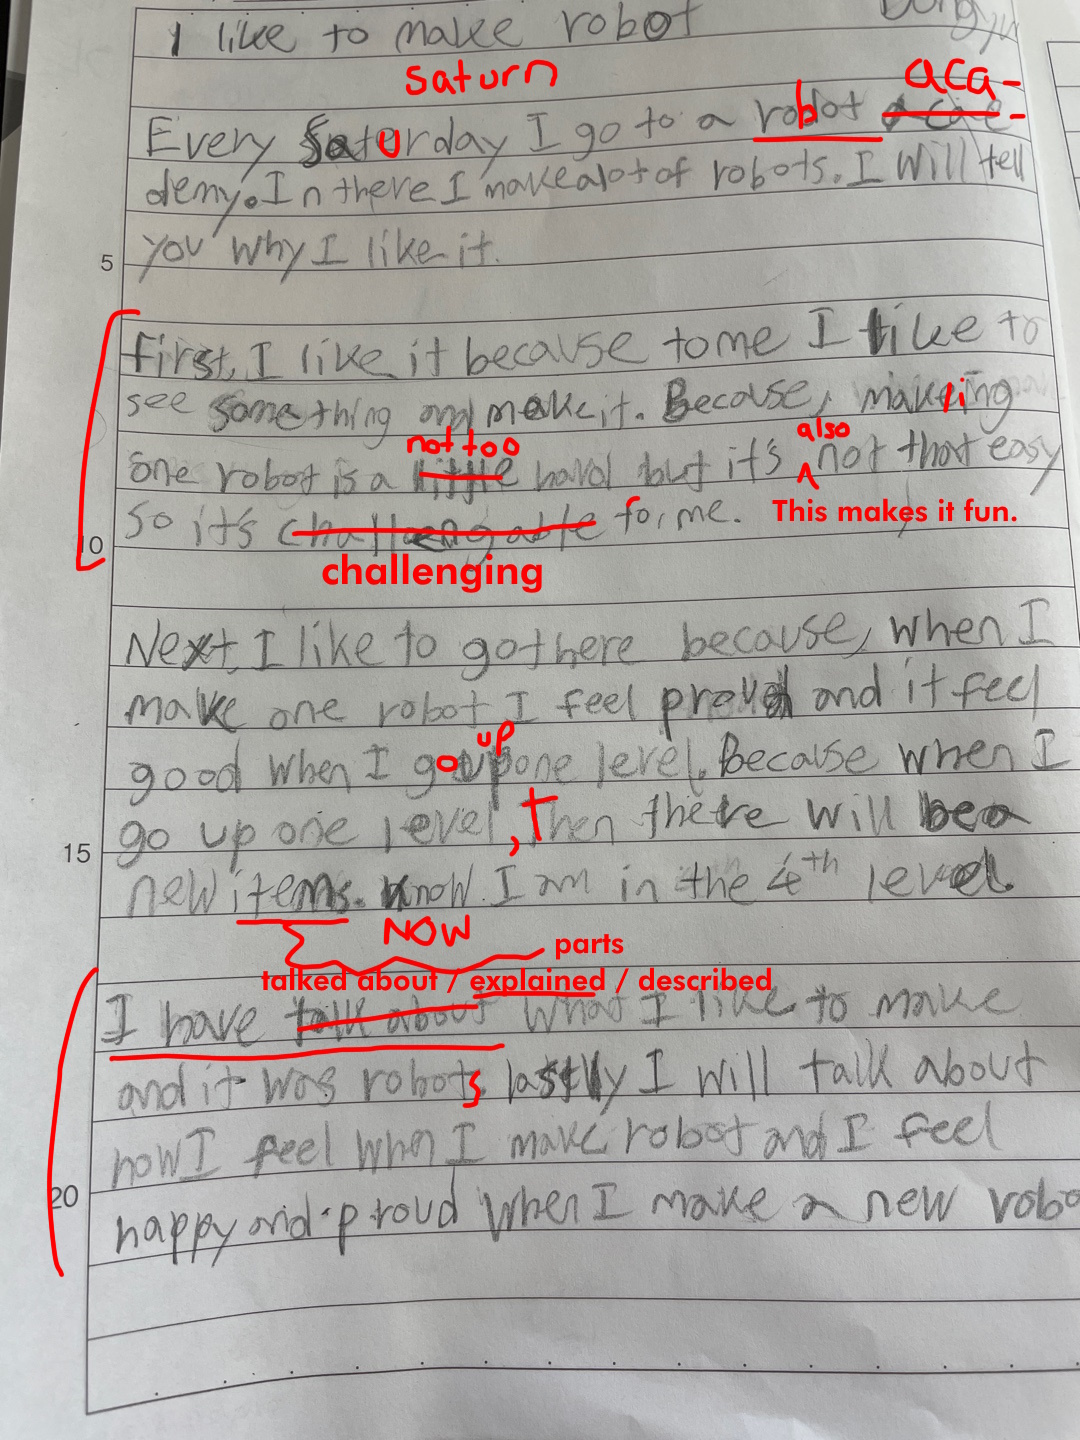 I like to make robot
saturn
aca-
Every Saturday I go to a robot acae-
demy. In there I make a lot of robots. I will tell
5
you why I like it.
First, I like it because to me I like to
see something and make it. Because, making
not too
also
one robot is a little hard but it's not that easy
so it's challengable for me. This makes it fun.
10
challenging
Next, I like to go there because, when I
make one robot I feel proud and it feel
up
good when I go up one level. Because when I
go up one level, Then there will be a
15
new items. know I am in the 4th level.
NOW
parts
talked about / explained / described
I have talk about what I like to make
and it was robots lastly I will talk about
how I feel when I make robot and I feel
20
happy and proud when I make a new robo